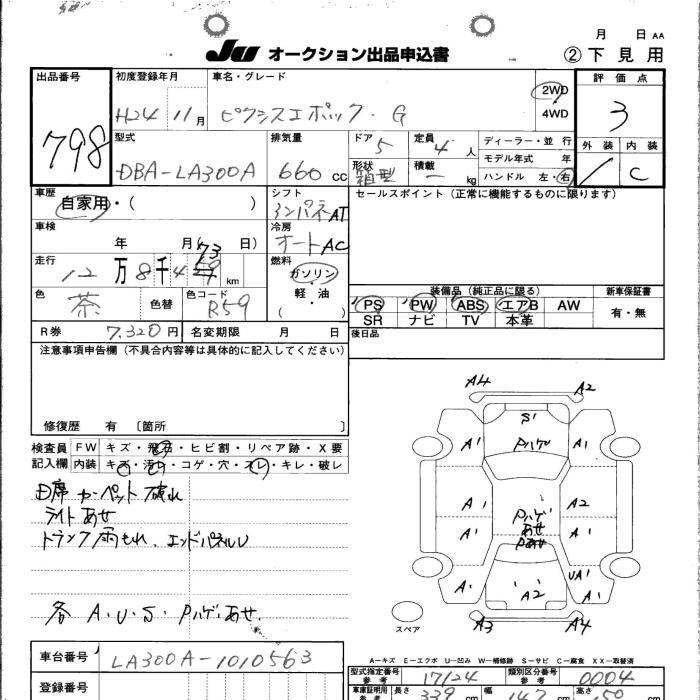 月 日 AA
JU オークション出品申込書 ② 下見用
出品番号 初度登録年月 車名・グレード 評価点
798 H24 11月 ピクシスエポック・G 2WD 4WD 3
型式 排気量 ドア 5 定員 4人 ディーラー・並行 外装 内装
DBA-LA300A 660cc 形状 箱型 積載 - kg モデル年式 年 ハンドル 左・右 / C
車歴 自家用・( ) シフト AT セールスポイント(正常に機能するものに限ります)
車検 年 月( 日) 冷房 オートAC
走行 12万8千4 km 燃料 ガソリン・軽油 ( )
色 茶 色替 色コード R59
装備品(純正品に限る) 新車保証書
PS PW ABS エアB AW 有・無
SR ナビ TV 本革
R券 7,320円 名変期限 月 日 後日品
注意事項申告欄(不具合内容等は具体的に記入してください)
修復歴 有 〔箇所 〕
検査員 FW キズ・飛石・ヒビ割・リペア跡・X要
記入欄 内装 キズ・汚れ・コゲ・穴・スレ・キレ・破レ
D席カーペット破れ
ライトあせ
トランク雨もれ、エンドパネルU
各 A・U・S・Pハゲあせ
A4 A2
S'
A' Pハゲ A'
A' Pハゲ A2
A' あせ A'
Pあせ
A' A2 UA' A'
スペア A3 A4
A-キズ E-エクボ U-凹み W-補修跡 S-サビ C-腐食 XX-交替済
車台番号 LA300A-1010563
型式指定番号 参考 17124 類別区分番号 参考 0004
登録番号
車庫証明用 参考 長さ 339 cm 幅 147 cm 高さ